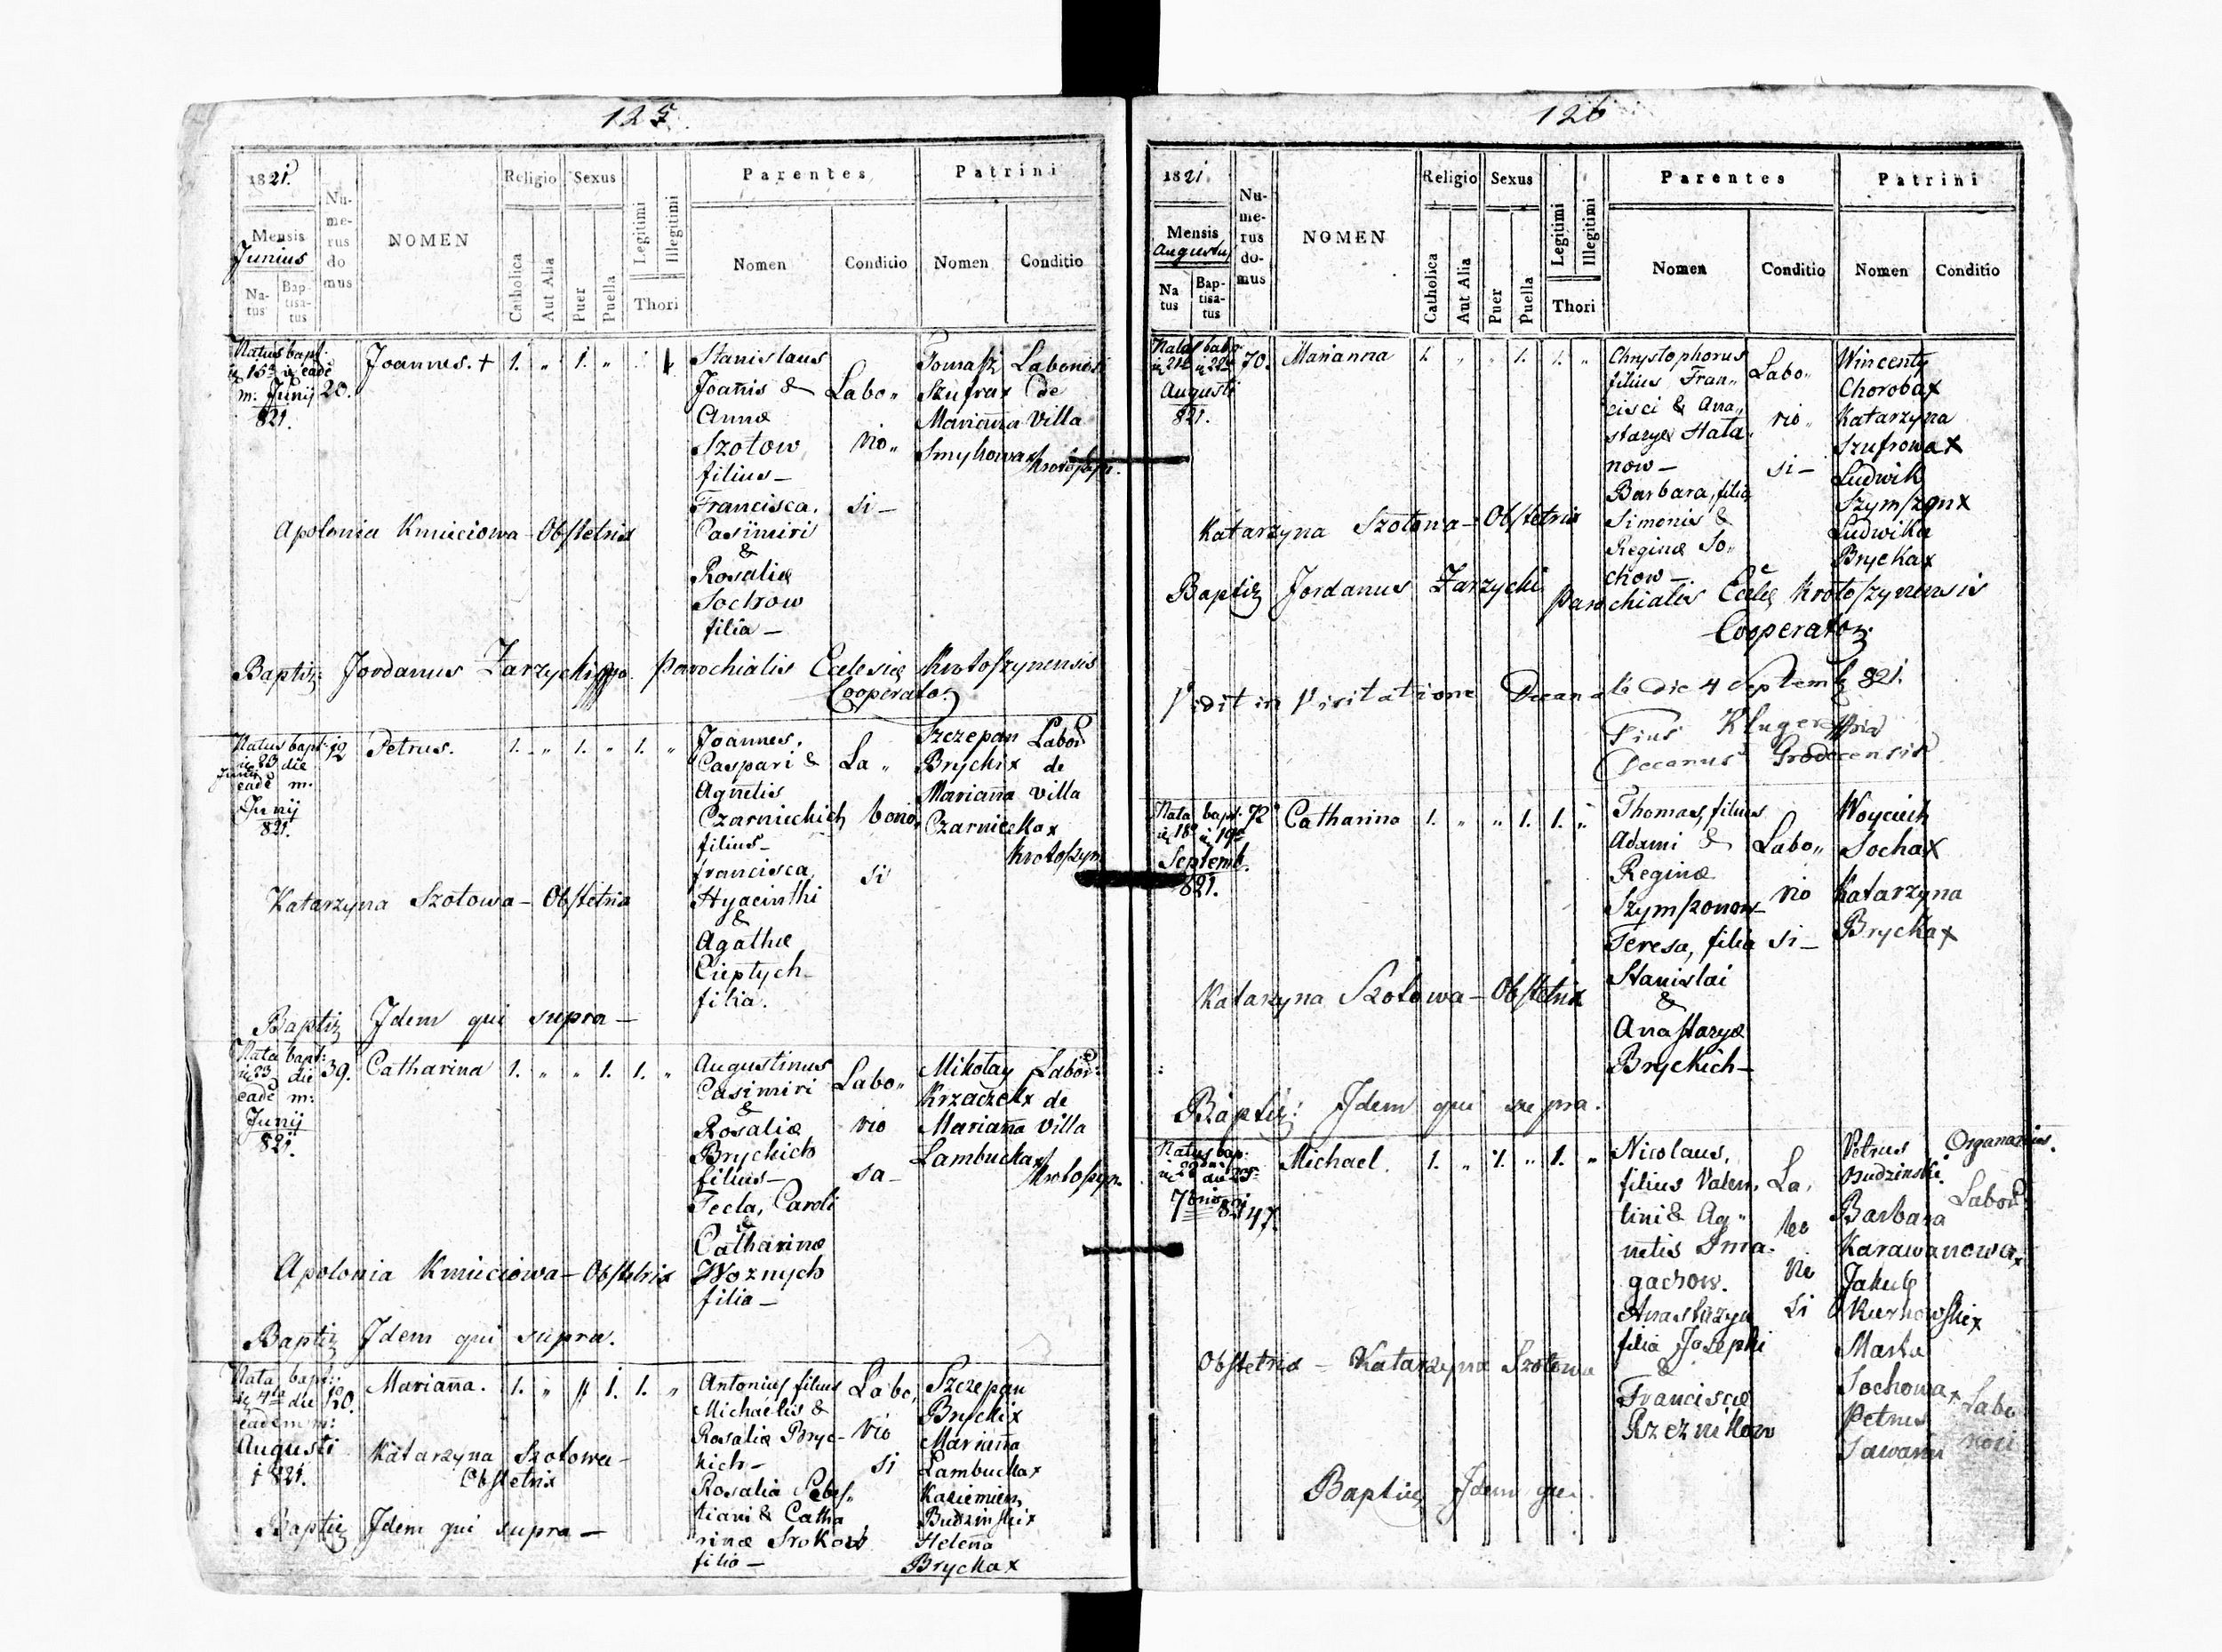 125
1821.
Mensis
Junius
Na-
tus
Bap-
tisa-
tus
Nu-
me-
rus
do
mus
NOMEN
Religio
Catholica
Aut Alia
Sexus
Puer
Puella
Legitimi
Illegitimi
Thori
Parentes
Nomen
Conditio
Patrini
Nomen
Conditio
Natus bapt.
m: Junij
821.
20.
Joannes. +
1. „ 1. „
Stanislaus
Joanis &
Anna
Szotow
filius –
Francisca,
Casimiri
&
Rosaliæ
Sochow
filia –
Labo„
rio„
si –
Tomasz
Szufra x
Marianna
Smykowa x
Laboriosi
de
Villa
Krotoszyn.
Apolonia Kmieciowa – Obstetrix
Baptiz: Jordanus Zarzycki Parochialis Ecclesiæ Krotoszynensis
Cooperator
Natus bapt:
ię 23 die
eadē m.
Junij
821.
12
Petrus.
1. „ 1. „ 1. „
Joannes,
Caspari &
Agnetis
Czarnieckich
filius –
Francisca,
Hyacinthi
&
Agathæ
Cieptych
filia.
La„
borio„
si
Szczepan
Brycki x
Marianna
Czarniecka x
Labor
de
villa
Krotoszyn
Katarzyna Szotowa – Obstetrix
Baptiz Idem qui supra –
Nata bapt:
ię 23 die
eadē m:
Junij
821.
39.
Catharina
1. „ „ 1. 1. „
Augustinus
Casimiri
&
Rosaliæ
Bryckich
filius –
Tecla, Caroli
&
Catharinæ
Woznych
filia –
Labo„
rio
sa –
Mikolay
Krzaczek x
Marianna
Lambucka x
Labor:
de
Villa
Krotoszyn
Apolonia Kmieciowa – Obstetrix
Baptiz Idem qui supra.
Nata bapt:
eadem m:
Augusti
1821.
Marianna.
1. „ „ 1. 1. „
Antonius filius
Michaelis &
Rosaliæ Bryc-
kich –
Rosalia Sebas„
tiani & Catha
rinæ Srokow
filia –
Labo,
rio
si
Szczepan
Brycki x
Marianna
Lambucka x
Kazimierz
Budzinski x
Helena
Brycka x
Katarzyna Szotowa –
Obstetrix
Baptiz Idem qui supra –
126
1821.
Mensis
Augustus
Na
tus
Bap-
tisa-
tus
Nu-
me-
rus
do-
mus
NOMEN
Religio
Catholica
Aut Alia
Sexus
Puer
Puella
Legitimi
Illegitimi
Thori
Parentes
Nomen
Conditio
Patrini
Nomen
Conditio
Nata bapt
ię 21 ię 22
Augusti
821.
70.
Marianna
1. „ „ 1. 1. „
Chrystophorus
filius Fran„
cisci & Ana„
staz­yæ Hata„
now –
Barbara, filia
Simonis &
Reginæ So„
chow –
Labo„
rio„
si –
Wincenty
Choroba x
Katarzyna
Szufrowa x
Ludwik
Szymszon x
Ludwika
Brycka x
Katarzyna Szotowa – Obstetrix
Baptiz Jordanus Zarzycki Parochialis Eccleæ Krotoszynensis
Cooperator.
Vidit in Visitatione Decanali die 4 Septemb 821.
Pius Kluger
Decanus Grodecensis
Nata bapt.
ię 18 ię 19
Septemb.
821.
72
Catharina
1. „ „ 1. 1. „
Thomas, filius
Adami &
Reginæ
Szymszonow
Teresa, filia
Stanislai
&
Anastazyæ
Bryckich –
Labo„
rio
si –
Woyciech
Socha x
Katarzyna
Brycka x
Katarzyna Szotowa – Obstetrix
Baptiz: Idem qui supra.
Natus bap:
821
47.
Michael.
1. „ 1. „ 1. „
Nicolaus,
filius Valen,
tini & Ag„
netis Sma-
gachow.
Anastazya
filia Josephi
&
Franciscæ
Rzeznikow
La,
bo
rio
si
Petrus
Budzinski.
Barbara
Karawanowa x
Jakub
Kurkowski x
Marta
Sochowa x
Petrus
Organarius.
Labor
Labo
riosi
Obstetrix – Katarzyna Szotowa
Baptiz Idem qui.